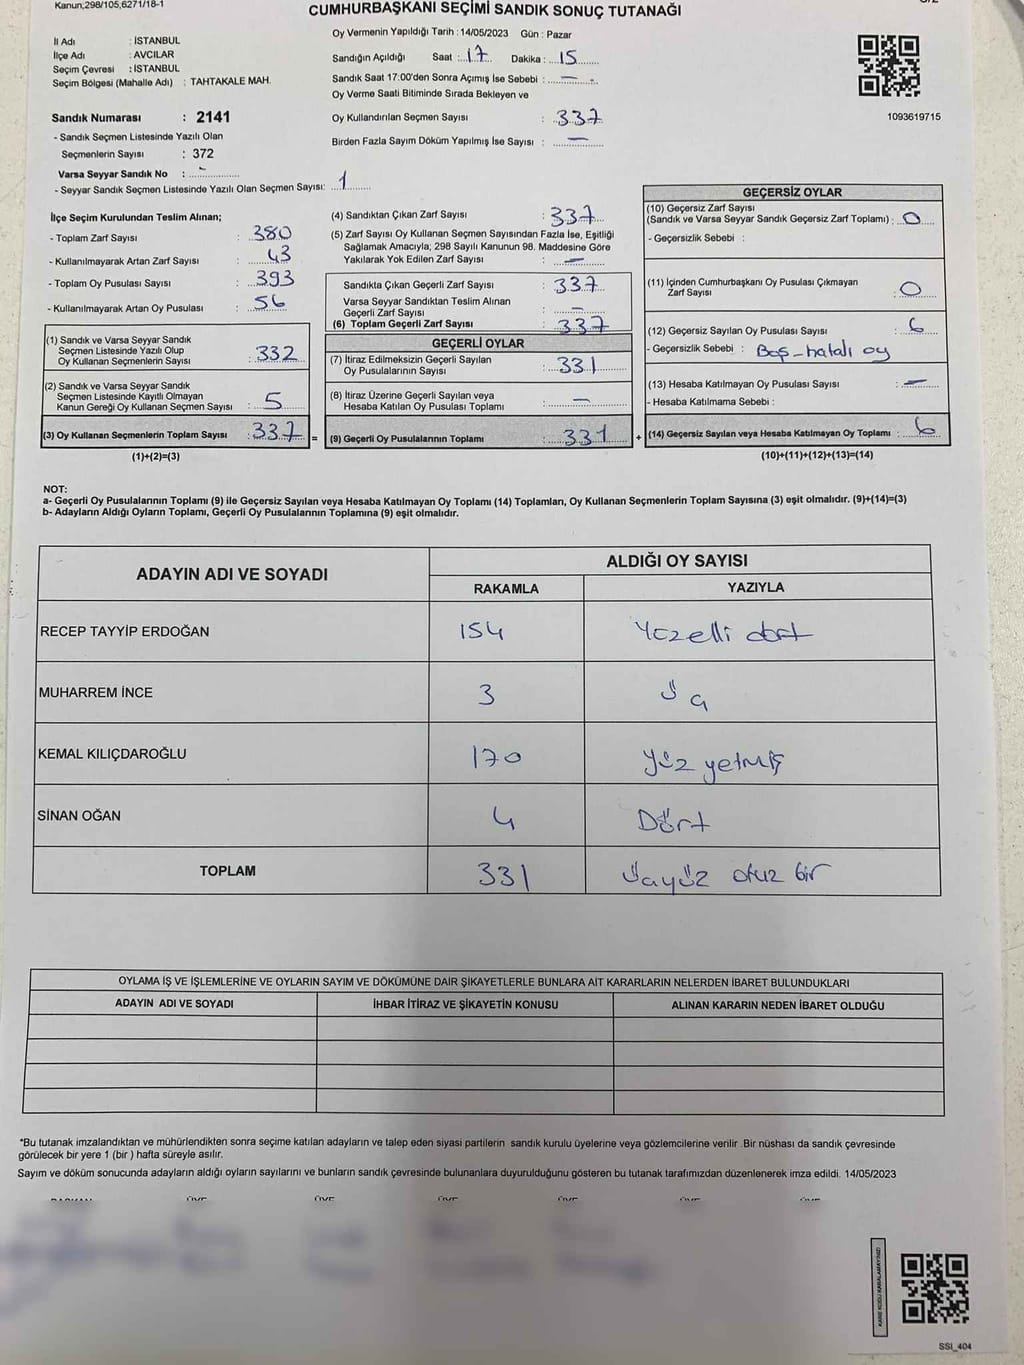 Kanun;298/105,6271/18-1
CUMHURBAŞKANI SEÇİMİ SANDIK SONUÇ TUTANAĞI
İl Adı : İSTANBUL
İlçe Adı : AVCILAR
Seçim Çevresi : İSTANBUL
Seçim Bölgesi (Mahalle Adı) : TAHTAKALE MAH.
Oy Vermenin Yapıldığı Tarih : 14/05/2023 Gün : Pazar
Sandığın Açıldığı Saat : 17 Dakika : 15
Sandık Saat 17:00'den Sonra Açımış İse Sebebi : —
Oy Verme Saati Bitiminde Sırada Bekleyen ve
Oy Kullandırılan Seçmen Sayısı : 337
Birden Fazla Sayım Döküm Yapılmış İse Sayısı : —
1093619715
Sandık Numarası : 2141
- Sandık Seçmen Listesinde Yazılı Olan
Seçmenlerin Sayısı : 372
Varsa Seyyar Sandık No : -
- Seyyar Sandık Seçmen Listesinde Yazılı Olan Seçmen Sayısı: 1
İlçe Seçim Kurulundan Teslim Alınan;
- Toplam Zarf Sayısı : 380
- Kullanılmayarak Artan Zarf Sayısı : 43
- Toplam Oy Pusulası Sayısı : 393
- Kullanılmayarak Artan Oy Pusulası : 56
(1) Sandık ve Varsa Seyyar Sandık
Seçmen Listesinde Yazılı Olup
Oy Kullanan Seçmenlerin Sayısı : 332
(2) Sandık ve Varsa Seyyar Sandık
Seçmen Listesinde Kayıtlı Olmayan
Kanun Gereği Oy Kullanan Seçmen Sayısı : 5
(3) Oy Kullanan Seçmenlerin Toplam Sayısı : 337
(1)+(2)=(3)
(4) Sandıktan Çıkan Zarf Sayısı : 337
(5) Zarf Sayısı Oy Kullanan Seçmen Sayısından Fazla İse, Eşitliği
Sağlamak Amacıyla; 298 Sayılı Kanunun 98. Maddesine Göre
Yakılarak Yok Edilen Zarf Sayısı : —
Sandıkta Çıkan Geçerli Zarf Sayısı : 337
Varsa Seyyar Sandıktan Teslim Alınan
Geçerli Zarf Sayısı : —
(6) Toplam Geçerli Zarf Sayısı : 337
GEÇERLİ OYLAR
(7) İtiraz Edilmeksizin Geçerli Sayılan
Oy Pusulalarının Sayısı : 331
(8) İtiraz Üzerine Geçerli Sayılan veya
Hesaba Katılan Oy Pusulası Toplamı : —
= (9) Geçerli Oy Pusulalarının Toplamı : 331
GEÇERSİZ OYLAR
(10) Geçersiz Zarf Sayısı
(Sandık ve Varsa Seyyar Sandık Geçersiz Zarf Toplamı) : 0
- Geçersizlik Sebebi :
(11) İçinden Cumhurbaşkanı Oy Pusulası Çıkmayan
Zarf Sayısı : 0
(12) Geçersiz Sayılan Oy Pusulası Sayısı : 6
- Geçersizlik Sebebi : Boş-hatalı oy
(13) Hesaba Katılmayan Oy Pusulası Sayısı : —
- Hesaba Katılmama Sebebi :
+ (14) Geçersiz Sayılan veya Hesaba Katılmayan Oy Toplamı : 6
(10)+(11)+(12)+(13)=(14)
NOT:
a- Geçerli Oy Pusulalarının Toplamı (9) ile Geçersiz Sayılan veya Hesaba Katılmayan Oy Toplamı (14) Toplamları, Oy Kullanan Seçmenlerin Toplam Sayısına (3) eşit olmalıdır. (9)+(14)=(3)
b- Adayların Aldığı Oyların Toplamı, Geçerli Oy Pusulalarının Toplamına (9) eşit olmalıdır.
ADAYIN ADI VE SOYADI ALDIĞI OY SAYISI
RAKAMLA YAZIYLA
RECEP TAYYİP ERDOĞAN 154 Yüzelli dört
MUHARREM İNCE 3 üç
KEMAL KILIÇDAROĞLU 170 yüz yetmiş
SİNAN OĞAN 4 Dört
TOPLAM 331 üçyüz otuz bir
OYLAMA İŞ VE İŞLEMLERİNE VE OYLARIN SAYIM VE DÖKÜMÜNE DAİR ŞİKAYETLERLE BUNLARA AİT KARARLARIN NELERDEN İBARET BULUNDUKLARI
ADAYIN ADI VE SOYADI İHBAR İTİRAZ VE ŞİKAYETİN KONUSU ALINAN KARARIN NEDEN İBARET OLDUĞU
*Bu tutanak imzalandıktan ve mühürlendikten sonra seçime katılan adayların ve talep eden siyasi partilerin sandık kurulu üyelerine veya gözlemcilerine verilir .Bir nüshası da sandık çevresinde
görülecek bir yere 1 (bir ) hafta süreyle asılır.
Sayım ve döküm sonucunda adayların aldığı oyların sayılarını ve bunların sandık çevresinde bulunanlara duyurulduğunu gösteren bu tutanak tarafımızdan düzenlenerek imza edildi. 14/05/2023
KARE KODU KARALAMAYINIZ!
SSI_404